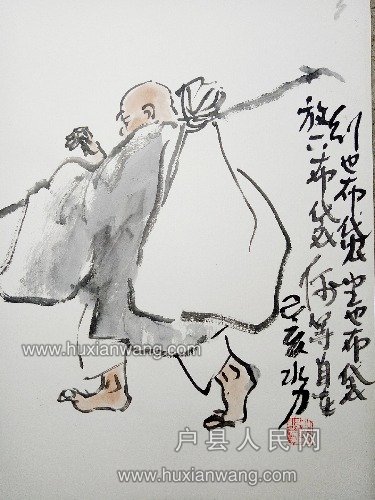 www.huxianwang.com
行也布袋坐也布袋
放下布袋何等自在
己亥
www.huxianwang.com
户县人民网
www.huxianwang.com